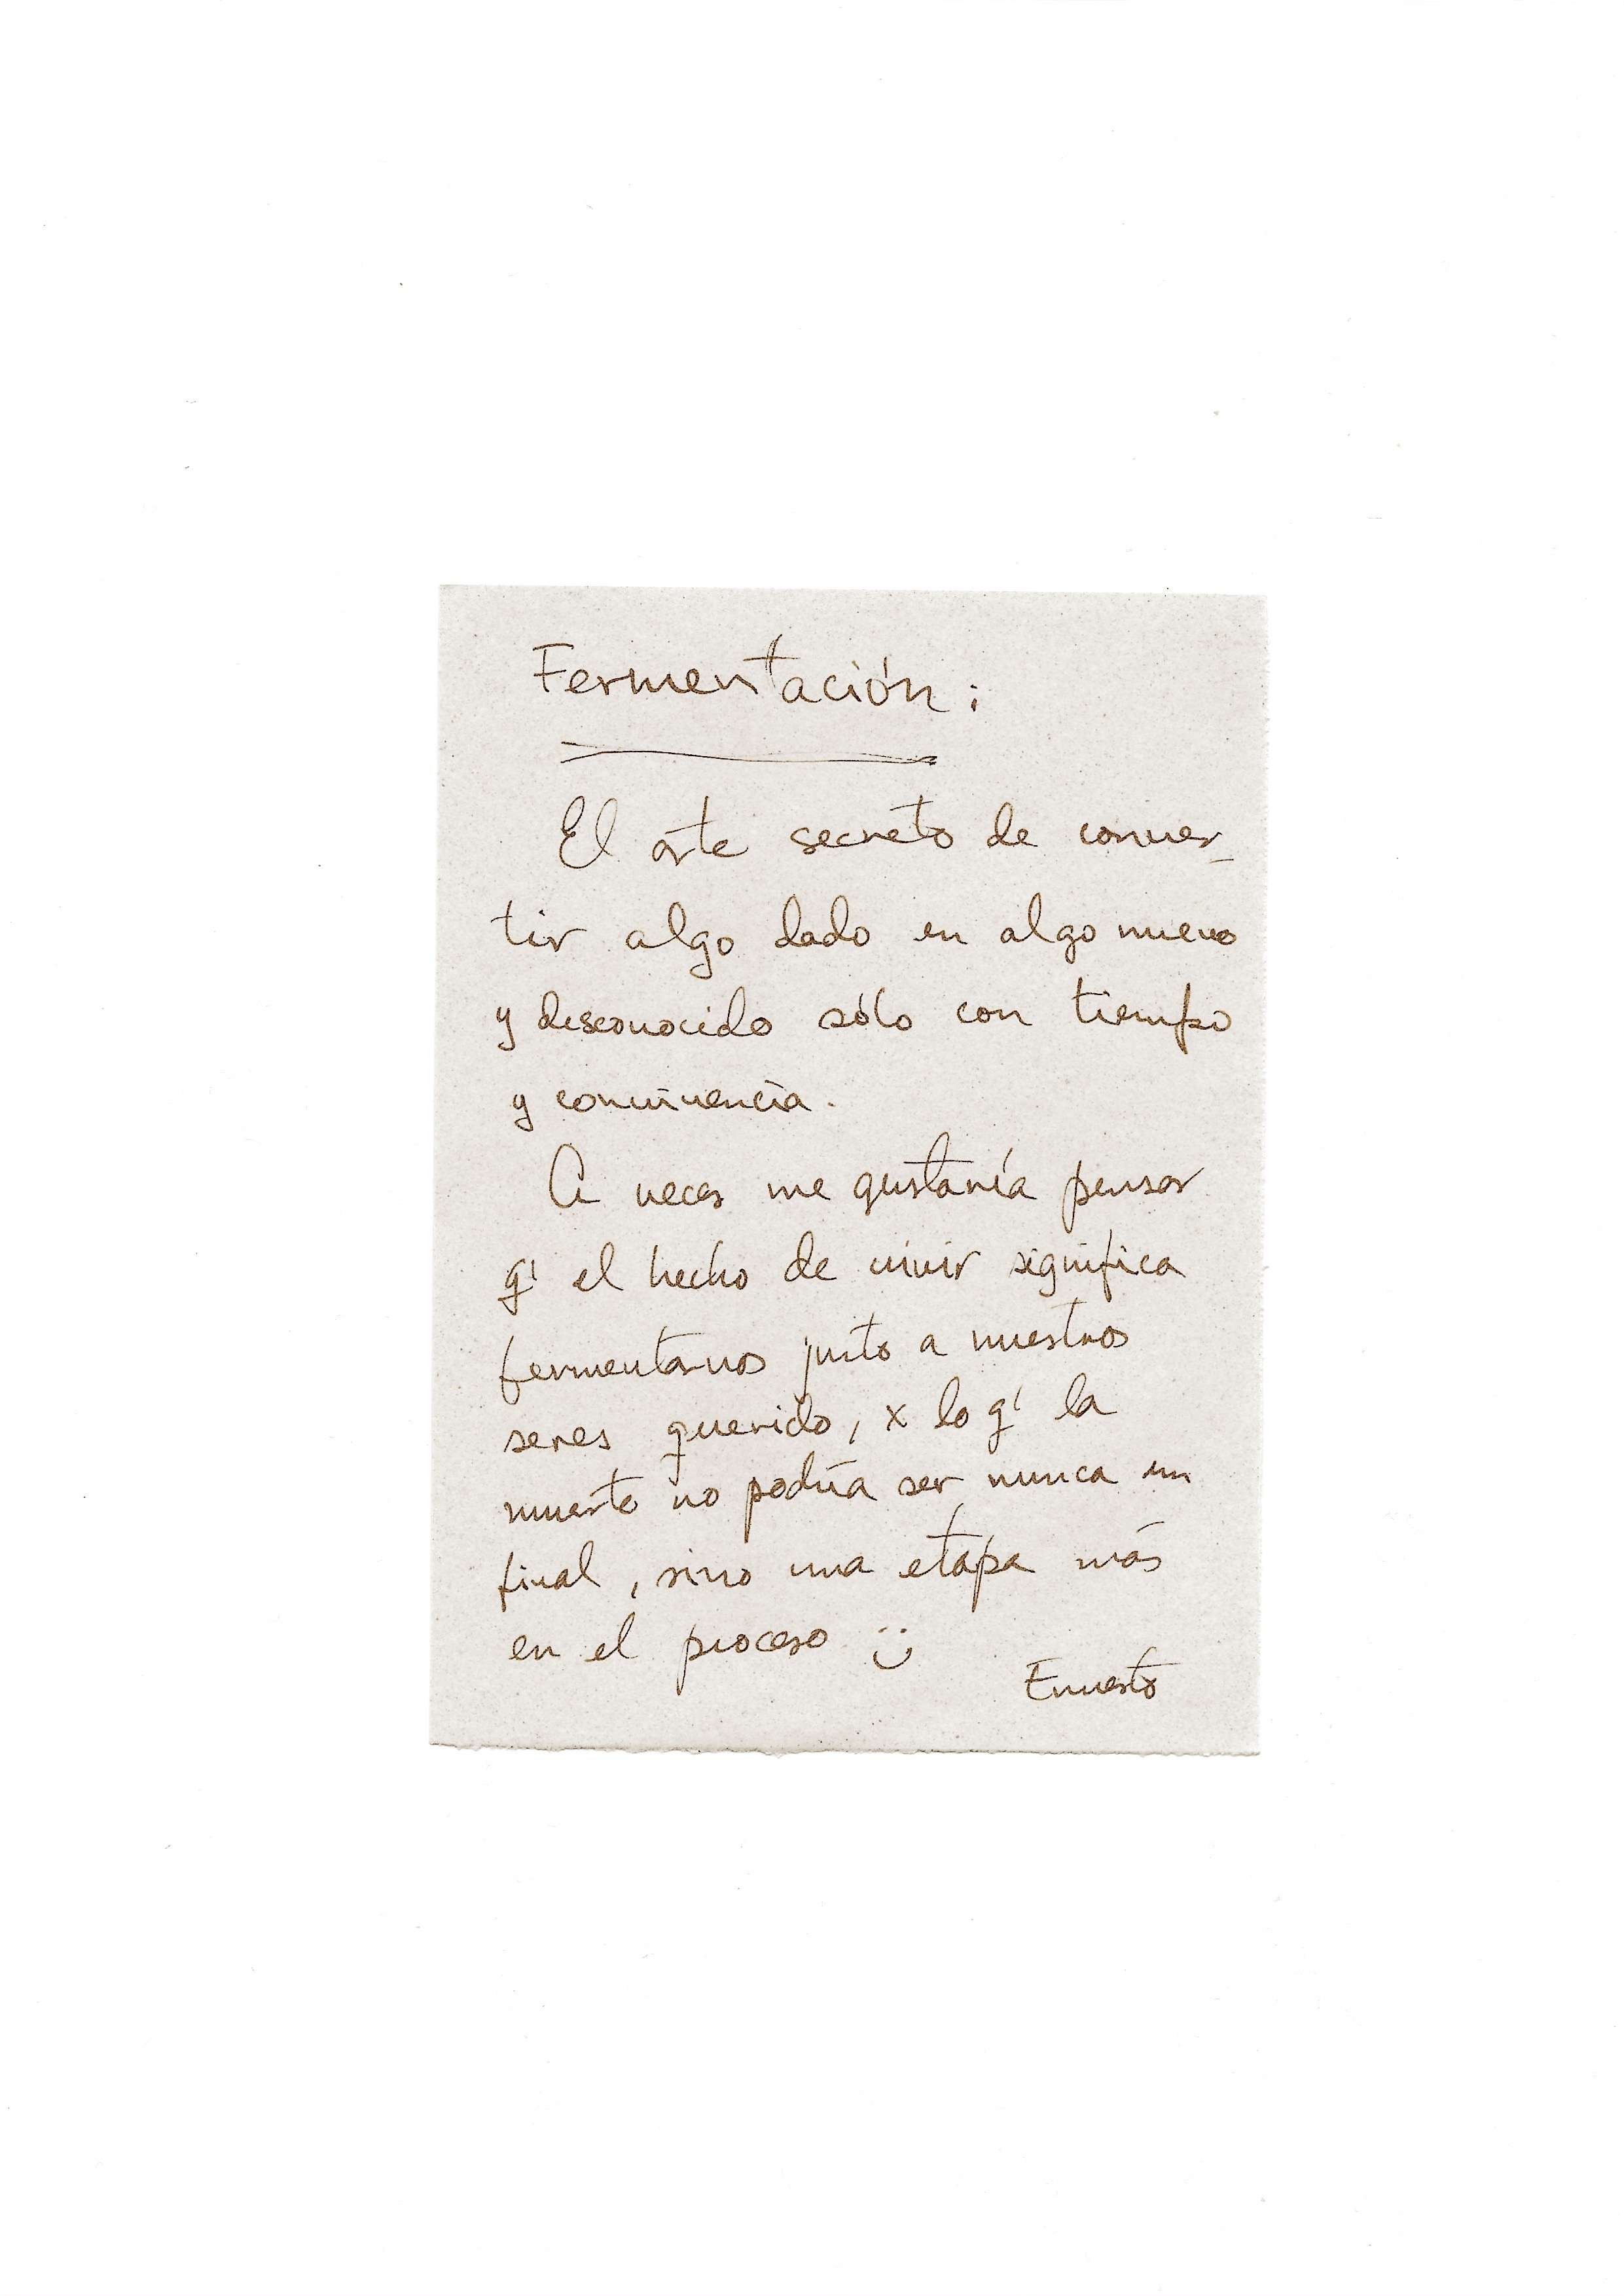 Fermentación:
El arte secreto de conver-
tir algo dado en algo nuevo
y desconocido sólo con tiempo
y convivencia.
A veces me gustaría pensar
q' el hecho de vivir significa
fermentarnos junto a nuestros
seres querido, x lo q' la
muerte no podría ser nunca un
final, sino una etapa más
en el proceso :)
Ernesto